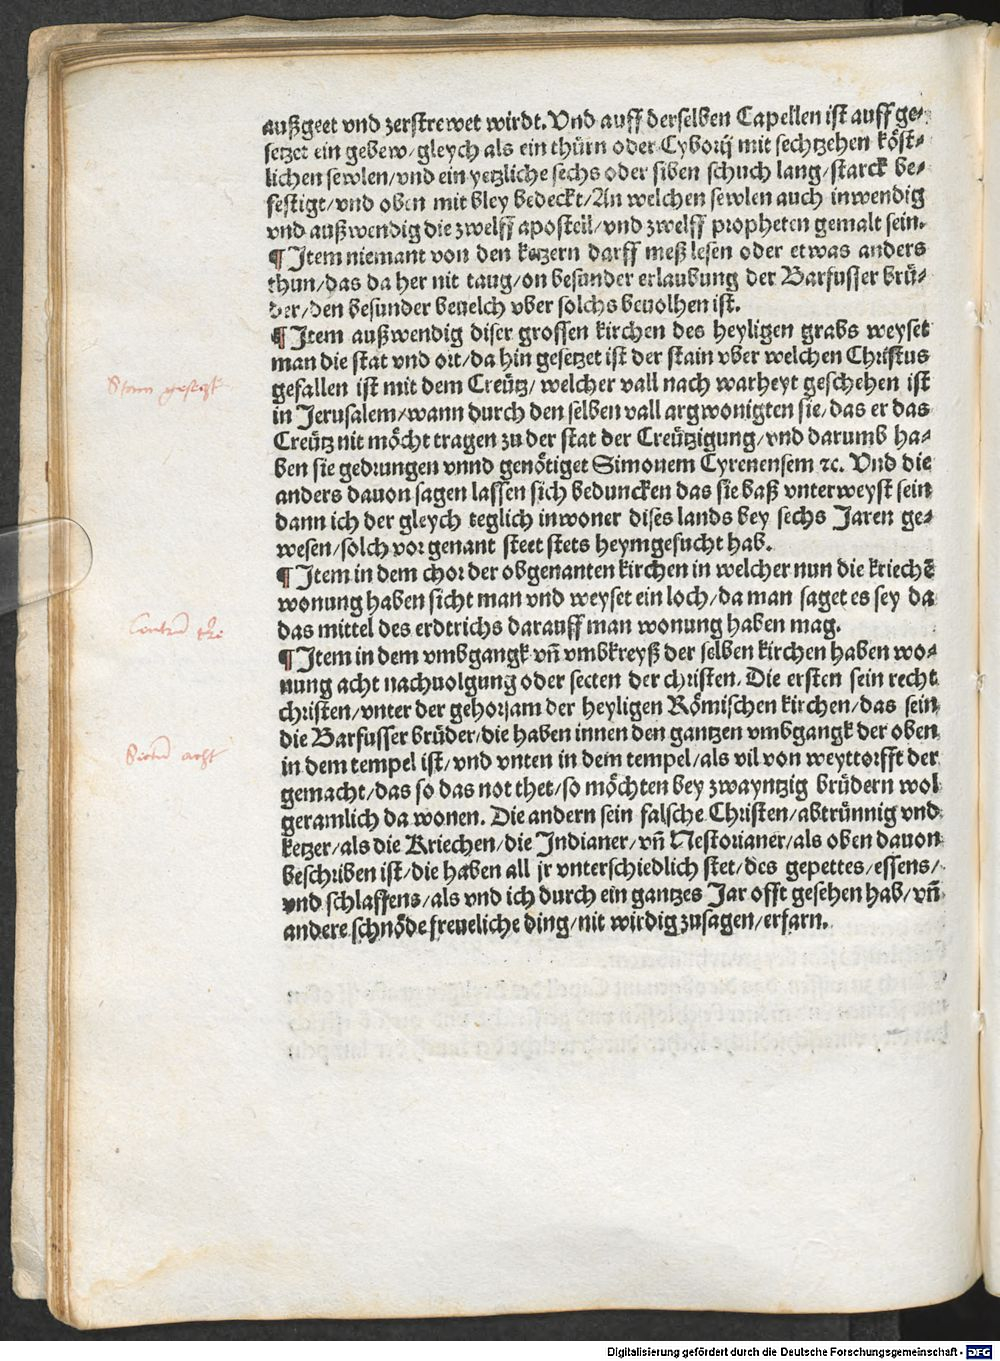 außgeet vnd zerstrewet wirdt. Vnd auff derselben Capellen ist auff ge⸗
setzet ein gebew/gleych als ein thürn oder Cyborij mit sechtzehen köst⸗
lichen sewlen/vnd ein yetzliche sechs oder siben schuch lang/starck be⸗
festigt/vnd oben mit bley bedeckt/An welchen sewlen auch inwendig
vnd außwendig die zwelff aposteil/vnd zwelff propheten gemalt sein.
¶ Item niemant von den ketzern darff meß lesen oder etwas anders
thun/das da her nit taug/on besunder erlaubung der Barfusser brü⸗
der/den besunder beuelch vber solchs beuolhen ist.
¶ Item außwendig diser grossen kirchen des heyligen grabs weyset
man die stat vnd ort/da hin gesetzet ist der stain vber welchen Christus
gefallen ist mit dem Creütz/welcher vall nach warheyt geschehen ist
in Jerusalem/wann durch den selben vall argwonigten sie/das er das
Creütz nit möcht tragen zu der stat der Creützigung/vnd darumb ha⸗
ben sie gedrungen vnnd genötiget Simonem Cyrenensem ⁊c. Vnd die
anders dauon sagen lassen sich beduncken das sie baß vnterweyst sein
dann ich der gleych teglich inwoner dises lands bey sechs Jaren ge⸗
wesen/solch vor genant steet stets heymgesucht hab.
¶ Item in dem chor der obgenanten kirchen in welcher nun die kriechē
wonung haben sicht man vnd weyset ein loch/da man saget es sey da
das mittel des erdtrichs darauff man wonung haben mag.
¶ Item in dem vmbgangk vn̄ vmbkreyß der selben kirchen haben wo⸗
nung acht nachuolgung oder secten der christen. Die ersten sein recht
christen/vnter der gehorsam der heyligen Römischen kirchen/das sein
die Barfusser brüder/die haben innen den gantzen vmbgangk der oben
in dem tempel ist/vnd vnten in dem tempel/als vil von weyttorfft der
gemacht/das so das not thet/so möchten bey zwayntzig brüdern wol
geramlich da wonen. Die andern sein falsche Christen/abtrünnig vnd
ketzer/als die Kriechen/die Indianer/vn̄ Nestorianer/als oben dauon
beschriben ist/die haben all jr vnterschiedlich stet/des gepettes/essens/
vnd schlaffens/als vnd ich durch ein gantzes Jar offt gesehen hab/vn̄
andere schnöde freueliche ding/nit wirdig zusagen/erfarn.
Stain
acht
Digitalisierung gefördert durch die Deutsche Forschungsgemeinschaft - DFG